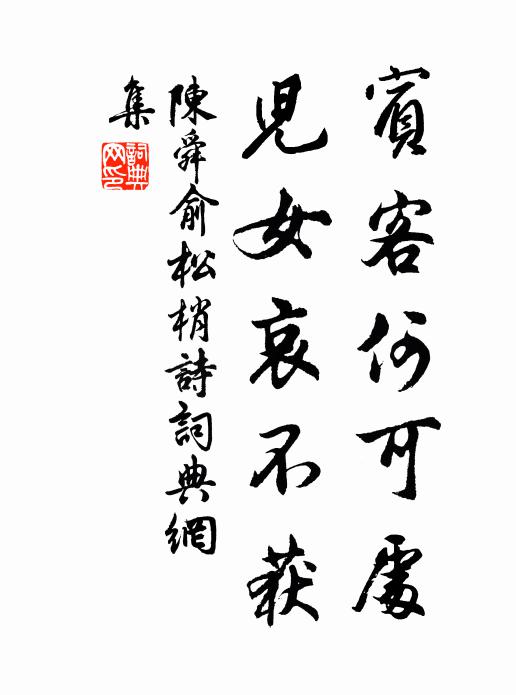 賓客何可處
兒女哀不获
陳舜俞松梢詩詞典網
集
詞典网印